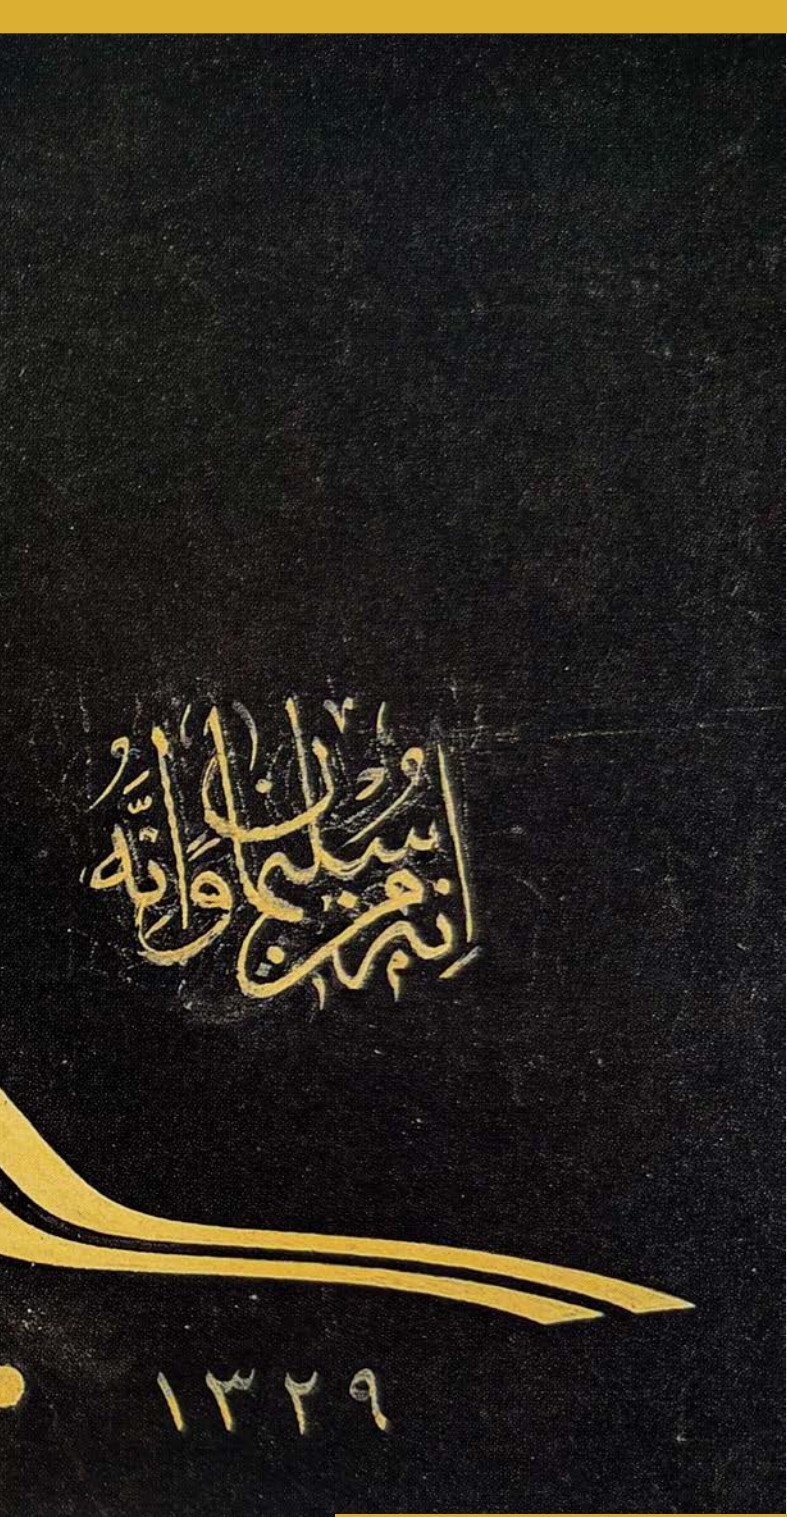 إنه من سليمان وَإِنَّهُ
١٣٢٩